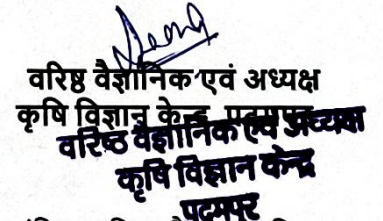 वरिष्ठ वैज्ञानिक एवं अध्यक्ष
कृषि विज्ञान केन्द्र, पदमपुर
वरिष्ठ वैज्ञानिक एवं अध्यक्ष
कृषि विज्ञान केन्द्र
पदमपुर